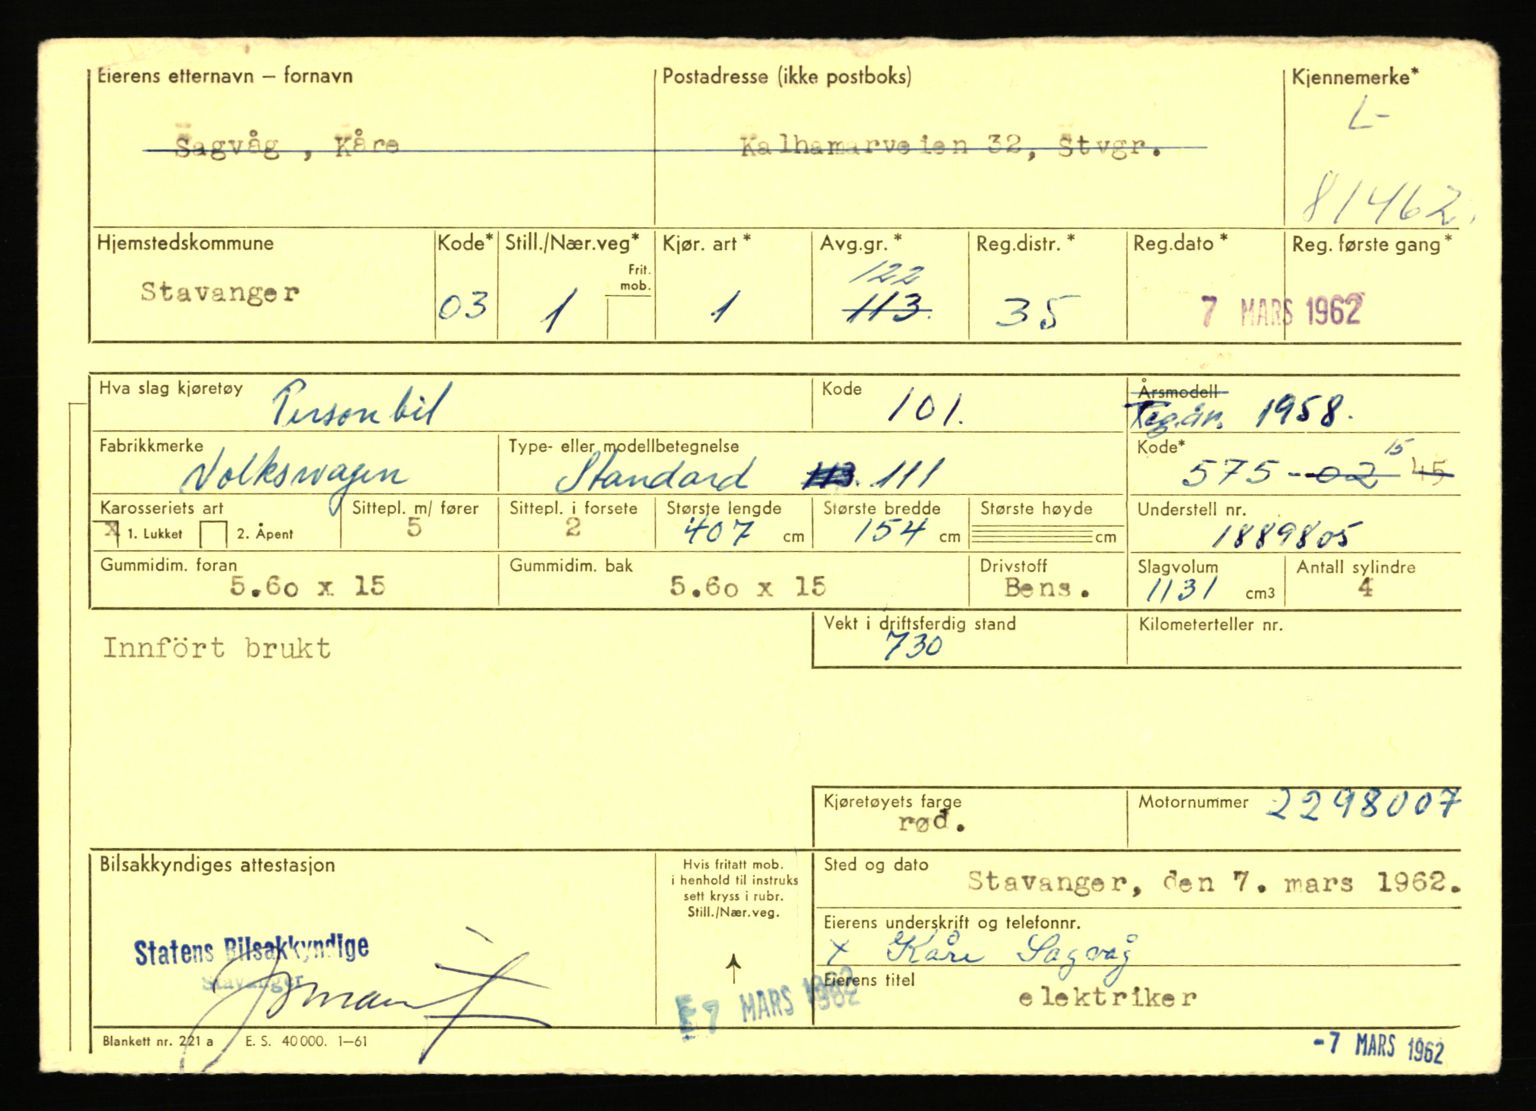 Eierens etternavn – fornavn
Postadresse (ikke postboks)
Kjennemerke*
Sagvåg, Kåre
Kalhamarveien 32, Stvgr.
L-
81462.
Hjemstedskommune
Kode*
Still./Nær.veg*
Frit. mob.
Kjør. art *
Avg.gr. *
Reg.distr. *
Reg.dato *
Reg. første gang*
Stavanger
03
1
1
122
113.
35
7 MARS 1962
Hva slag kjøretøy
Personbil
Kode
101.
Årsmodell
Reg.år. 1958.
Fabrikkmerke
Volkswagen
Type- eller modellbetegnelse
Standard 113. 111
Kode*
575-02 15 45
Karosseriets art
x 1. Lukket
2. Åpent
Sittepl. m/ fører
5
Sittepl. i forsete
2
Største lengde
407 cm
Største bredde
154 cm
Største høyde
cm
Understell nr.
1889805
Gummidim. foran
5.60 x 15
Gummidim. bak
5.60 x 15
Drivstoff
Bens.
Slagvolum
1131 cm3
Antall sylindre
4
Innfört brukt
Vekt i driftsferdig stand
730
Kilometerteller nr.
Kjøretøyets farge
rød.
Motornummer 2298007
Bilsakkyndiges attestasjon
Statens Bilsakkyndige
Stavanger
Hvis fritatt mob.
i henhold til instruks
sett kryss i rubr.
Still./Nær.veg.
7 MARS 1962
Sted og dato
Stavanger, den 7. mars 1962.
Eierens underskrift og telefonnr.
x Kåre Sagvåg
Eierens titel
elektriker
Blankett nr. 221 a E. S. 40 000. 1–61
-7 MARS 1962